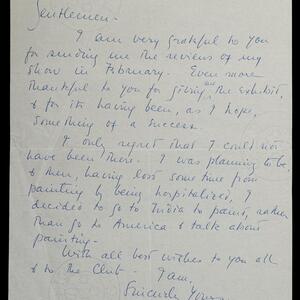 Gentlemen -
I am very grateful to you
for sending me the reviews of my
show in February. Even more
thankful to you for giving me the exhibit,
& for its having been, as I hope,
something of a success.
I only regret that I could not
have been there. I was planning to be
& then, having lost some time from
painting by being hospitalized, I
decided to go to India to paint, rather
than go to America & talk about
painting -
With all best wishes to you all
& to the Club - I am,
Sincerely Yours